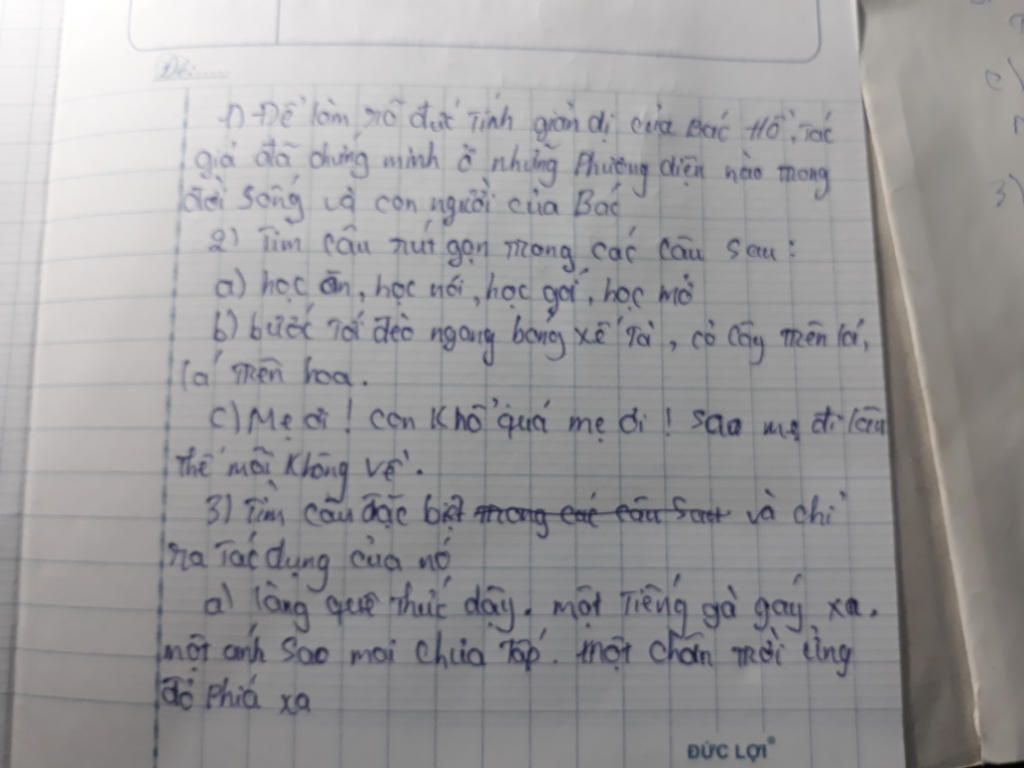 Đề:......
1) Để làm rõ đức tính giản dị của Bác Hồ, tác
giả đã chứng minh ở những phương diện nào trong
đời sống và con người của Bác
2) Tìm câu rút gọn trong các câu sau:
a) học ăn, học nói, học gói, học mở
b) bước tới đèo ngang bóng xế tà, cỏ cây trên lá,
lá trên hoa.
c) Mẹ ơi! con khổ quá mẹ ơi! sao mẹ đi lâu
thế mãi không về.
3) Tìm câu đặc biệt trong các câu sau và chỉ
ra tác dụng của nó
a) làng quê thức dậy. một tiếng gà gáy xa.
một ánh sao mai chưa tắt. một chân trời ửng
đỏ phía xa
ĐỨC LỢI